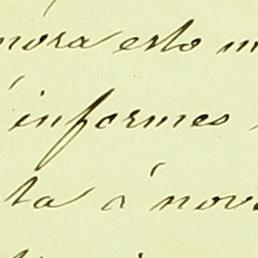 mora esto m
informes
ta á nov